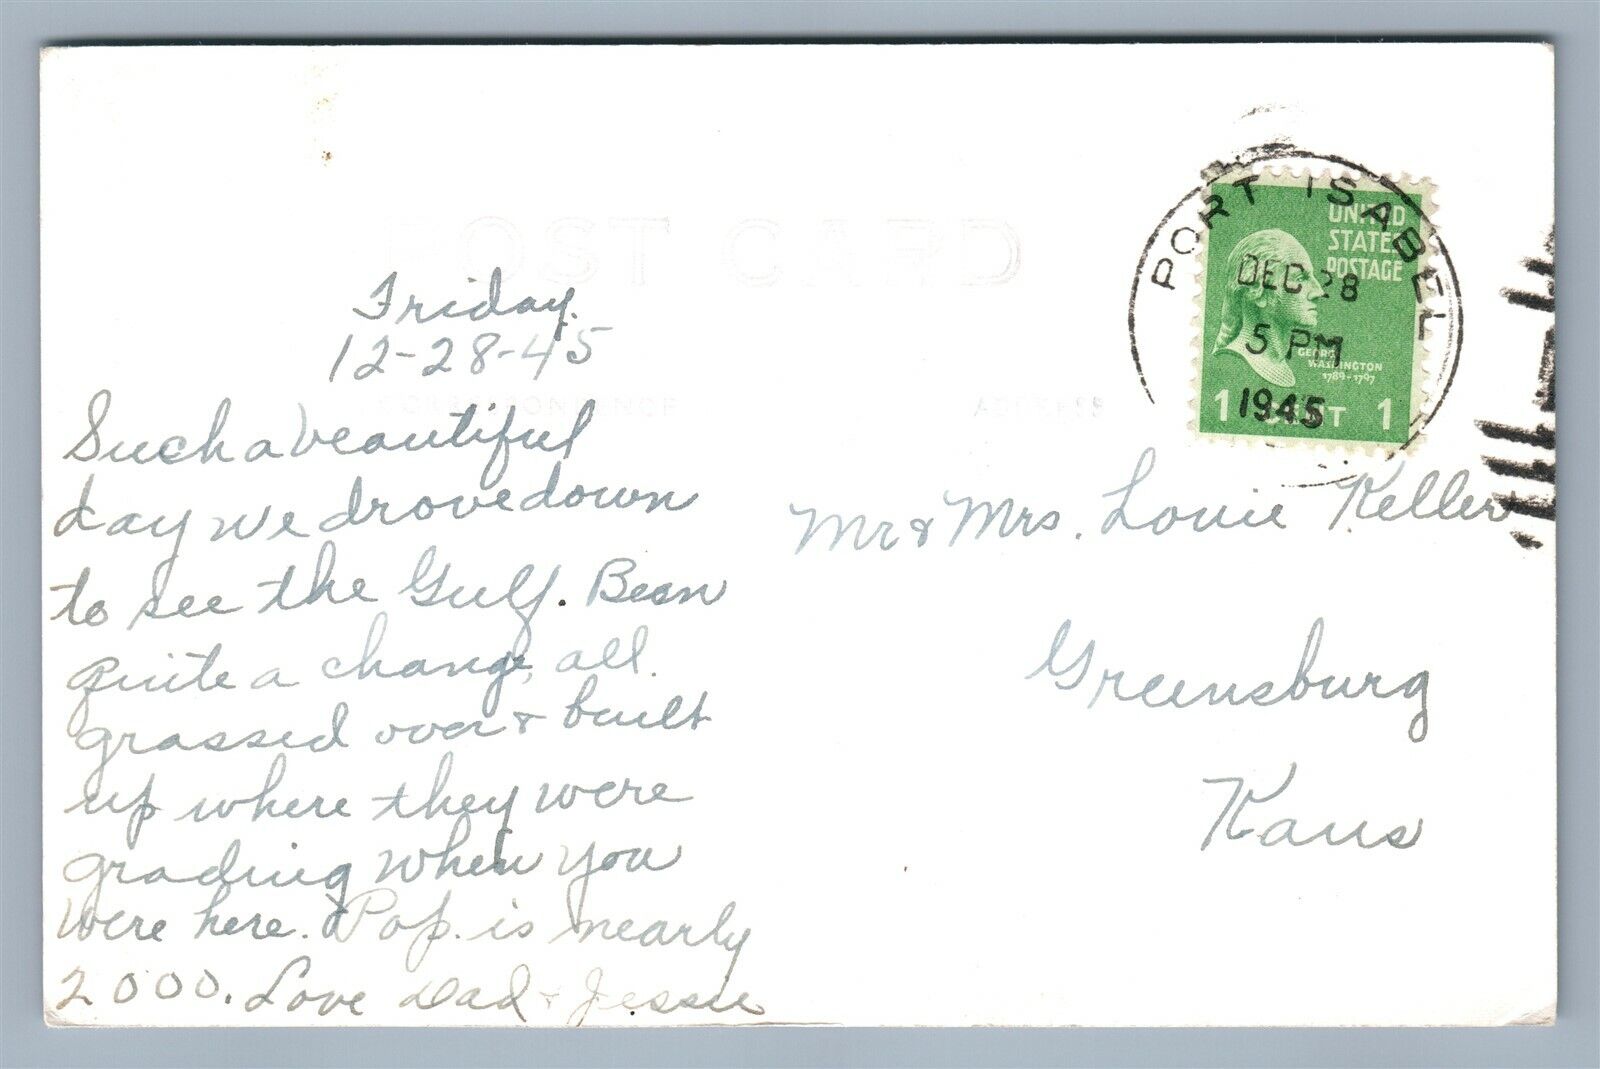 POST CARD
PORT ISABEL
DEC 28
5 PM
1945
UNITED
STATES
POSTAGE
GEORGE
WASHINGTON
1789-1797
1 CENT 1
CORRESPONDENCE
ADDRESS
Friday.
12-28-45
Such a beautiful
day we drove down
to see the Gulf. Been
quite a change, all
grassed over & built
up where they were
grading when you
were here. Pop. is nearly
2000. Love Dad & Jessie
Mr & Mrs. Louie Keller
Greensburg
Kans